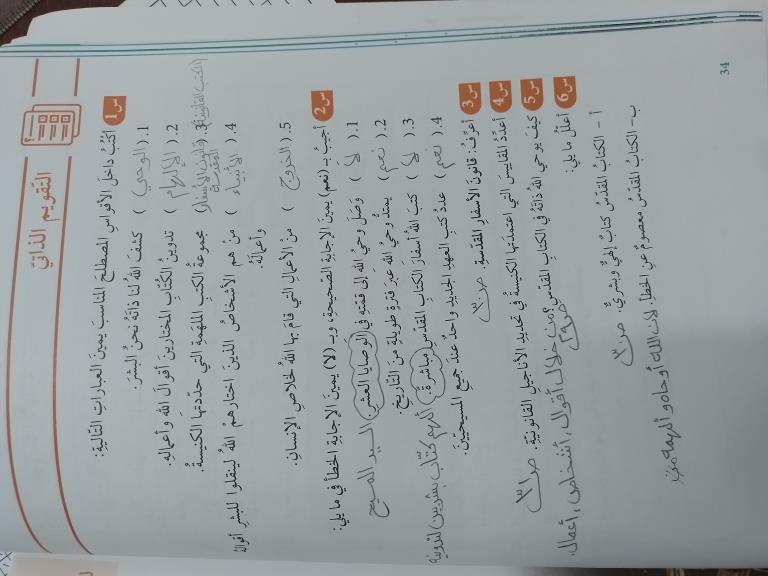 التقويم الذاتي
س1 أكتُبُ داخلَ الأقواسِ المصطلحَ المناسبَ يمينَ العباراتِ التّاليةِ:
1. ( الوحي ) كشفَ اللهُ لنا ذاتَهُ نحنُ البشرَ.
2. ( الإلهام ) تدوينُ الكُتّابِ المختارينَ أقوالَ اللهِ وأعمالِهِ.
(الكتب القانونية)
3. ( قانون الأسفار المقدسة ) مجموعةُ الكتبِ الملهَمةِ التي حدّدتها الكنيسةُ.
4. ( الأنبياء ) منْ همُ الأشخاصُ الذينَ اختارهمُ اللهُ لينقلوا للبشرِ أقوالَهُ
وأعمالَهُ.
5. ( الخروج ) منَ الأعمالِ التي قامَ بها اللهُ لخلاصِ الإنسانِ.
س2 أجيبُ بـ (نعم) يمينَ الإجابةِ الصّحيحةِ، وبـ (لا) يمينَ الإجابةِ الخطأِ في ما يلي:
السيد المسيح
1. ( لا ) وَصَلَ وحيُ اللهِ إلى قمّتِهِ في الوصايا العشرِ.
2. ( نعم ) يمتدُّ وحيُ اللهِ عبرَ فترةٍ طويلةٍ منَ التّاريخِ.
3. ( لا ) كتبَ اللهُ أسفارَ الكتابِ المقدّسِ مباشرةً. ألهم كتّاب بشريين لتدوينه
4. ( نعم ) عددُ كتبِ العهدِ الجديدِ واحدٌ عندَ جميعِ المسيحيّينَ.
س3 أعرِّفُ: قانونَ الأسفارِ المقدّسةِ. ص٣٠
س4 أعدّدُ المقاييسَ التي اعتمدَتها الكنيسةُ في تحديدِ الأناجيلِ القانونيّةِ. ص٣١
س5 كيفَ يوحي اللهُ ذاتَهُ في الكتابِ المقدّسِ؟ من خلال أقوال، أشخاص، أعمال.
ص٢٩
س6 أعلّلُ ما يلي:
أ - الكتابُ المقدّسُ كتابٌ إلهيٌّ وبشريٌّ. ص٣٠
ب- الكتابُ المقدّسُ معصومٌ عنِ الخطأِ. لان الله أوحاه و ألهمه
34